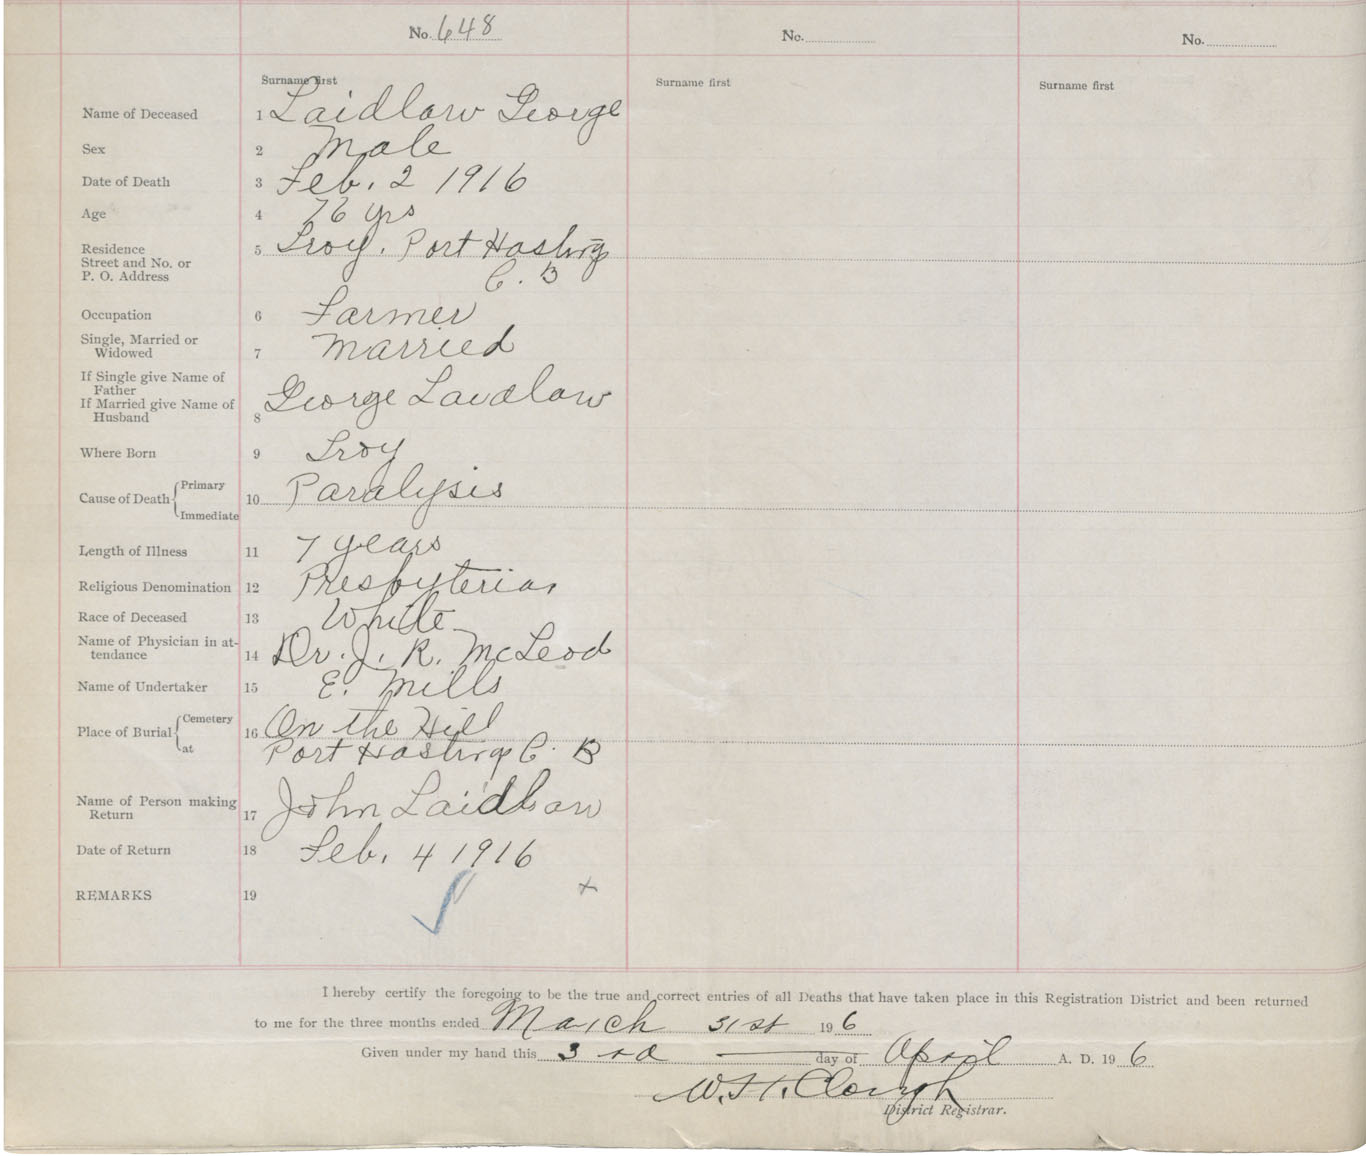 No. 648 No. No.
Surname first Surname first Surname first
Name of Deceased 1 Laidlaw George
Sex 2 Male
Date of Death 3 Feb. 2 1916
Age 4 76 yrs
Residence
Street and No. or
P. O. Address 5 Troy. Port Hastings
C. B
Occupation 6 Farmer
Single, Married or
Widowed 7 Married
If Single give Name of
Father
If Married give Name of
Husband 8 George Laidlaw
Where Born 9 Troy
Cause of Death { Primary 10 Paralysis
Immediate
Length of Illness 11 7 years
Religious Denomination 12 Presbyterian
Race of Deceased 13 White
Name of Physician in at-
tendance 14 Dr. J. R. McLeod
Name of Undertaker 15 E. Mills
Place of Burial { Cemetery 16 On the Hill
at Port Hastings C. B
Name of Person making
Return 17 John Laidlaw
Date of Return 18 Feb. 4 1916
REMARKS 19
I hereby certify the foregoing to be the true and correct entries of all Deaths that have taken place in this Registration District and been returned
to me for the three months ended March 31st 19 6
Given under my hand this 3rd day of April A. D. 19 6
W. H. Clough
District Registrar.